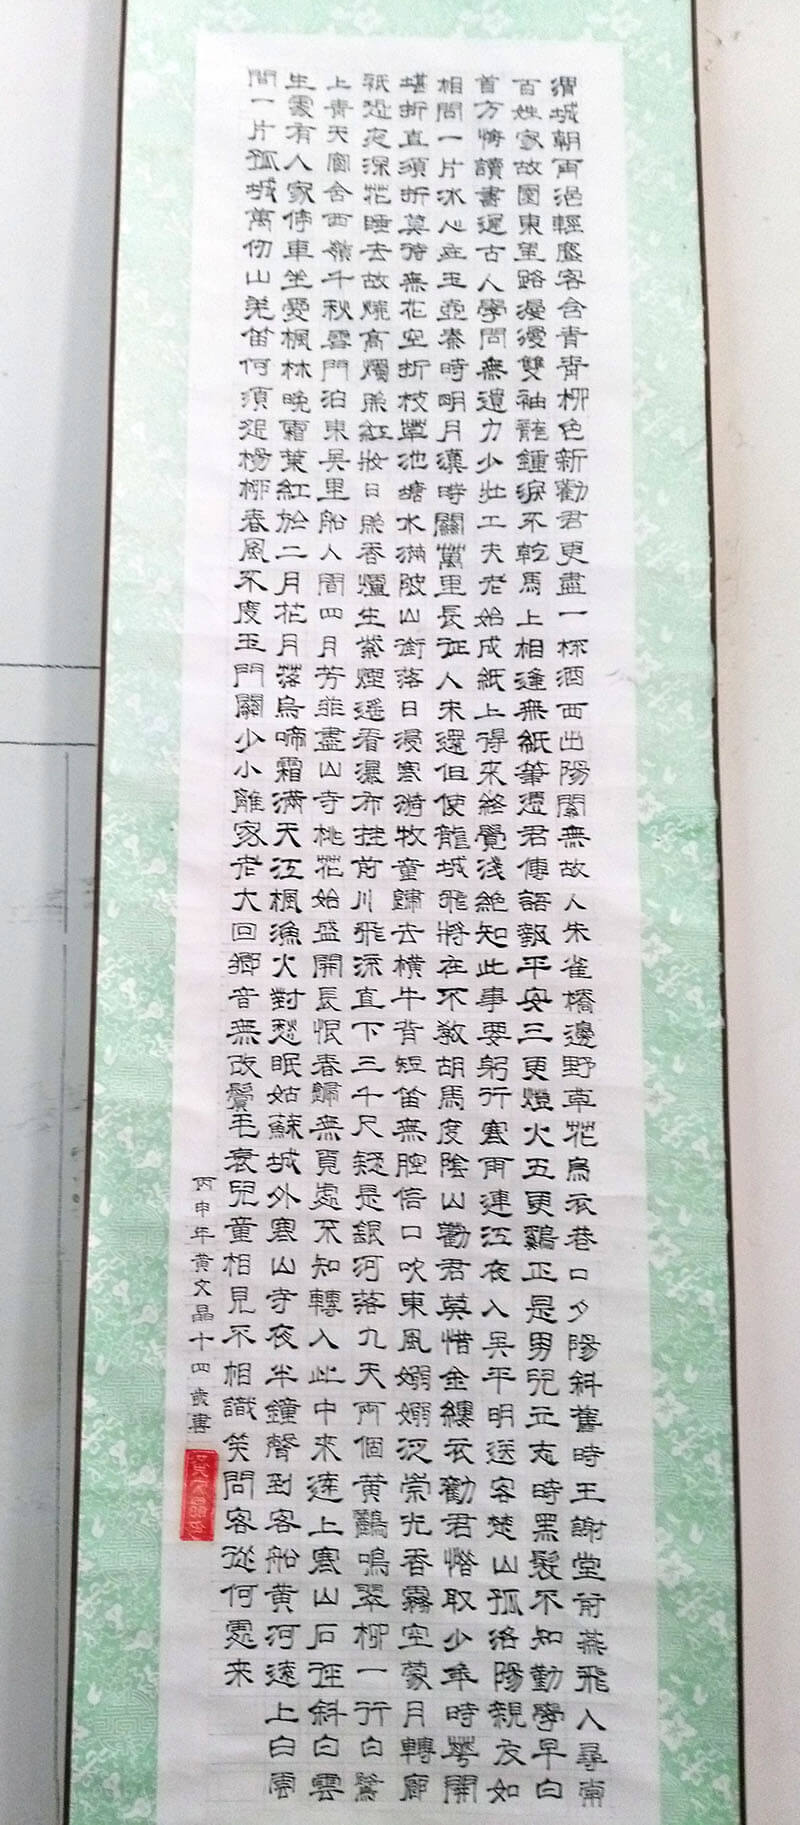 渭城朝雨浥輕塵客舍青青柳色新勸君更盡一杯酒西出陽關無故人朱雀橋邊野草花烏衣巷口夕陽斜舊時王謝堂前燕飛入尋常
百姓家故園東望路漫漫雙袖龍鍾淚不乾馬上相逢無紙筆憑君傳語報平安三更燈火五更鷄正是男兒立志時黑髮不知勤學早白
首方悔讀書遲古人學問無遺力少壯工夫老始成紙上得來終覺淺絕知此事要躬行寒雨連江夜入吳平明送客楚山孤洛陽親友如
相問一片冰心在玉壺秦時明月漢時關萬里長征人未還但使龍城飛將在不教胡馬度陰山勸君莫惜金縷衣勸君惜取少年時花開
堪折直須折莫待無花空折枝草池塘水滿陂山銜落日浸寒漪牧童歸去橫牛背短笛無腔信口吹東風嫋嫋泛崇光香霧空蒙月轉廊
祇恐夜深花睡去故燒高燭照紅妝日照香爐生紫煙遙看瀑布挂前川飛流直下三千尺疑是銀河落九天兩個黃鸝鳴翠柳一行白鷺
上青天窗含西嶺千秋雪門泊東吳里船人間四月芳菲盡山寺桃花始盛開長恨春歸無覓處不知轉入此中來遠上寒山石徑斜白雲
生處有人家停車坐愛楓林晚霜葉紅於二月花月落烏啼霜滿天江楓漁火對愁眠姑蘇城外寒山寺夜半鐘聲到客船黃河遠上白雲
間一片孤城萬仞山羌笛何須怨楊柳春風不度玉門關少小離家老大回鄉音無改鬢毛衰兒童相見不相識笑問客從何處來
丙申年黃文晶十四歲書